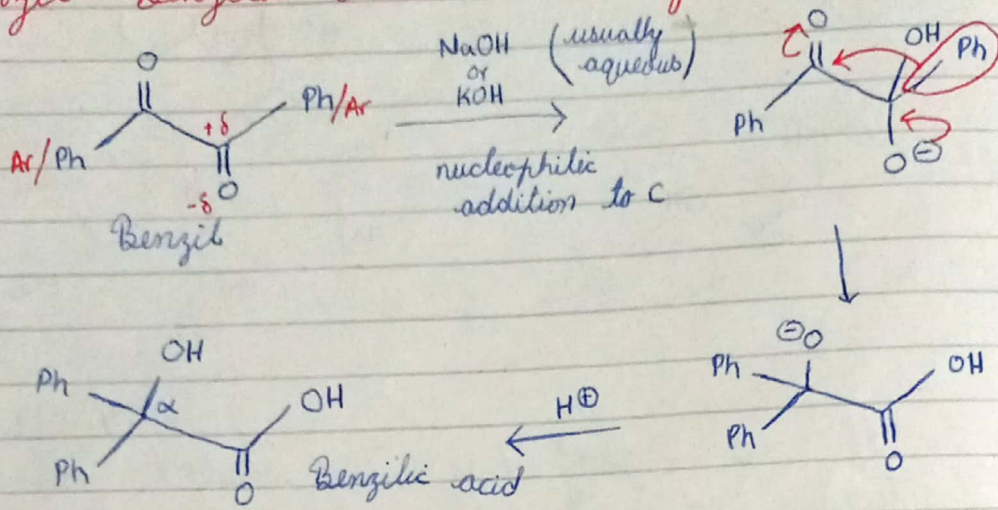 O
Ar/Ph
+δ
Ph/Ar
-δ O
Benzil
NaOH (usually
or aqueous)
KOH
nucleophilic
addition to C
O
OH
Ph
Ph
O⊖
⊖O
Ph
OH
Ph
O
H⊕
OH
Ph
α
OH
Ph
O
Benzilic acid